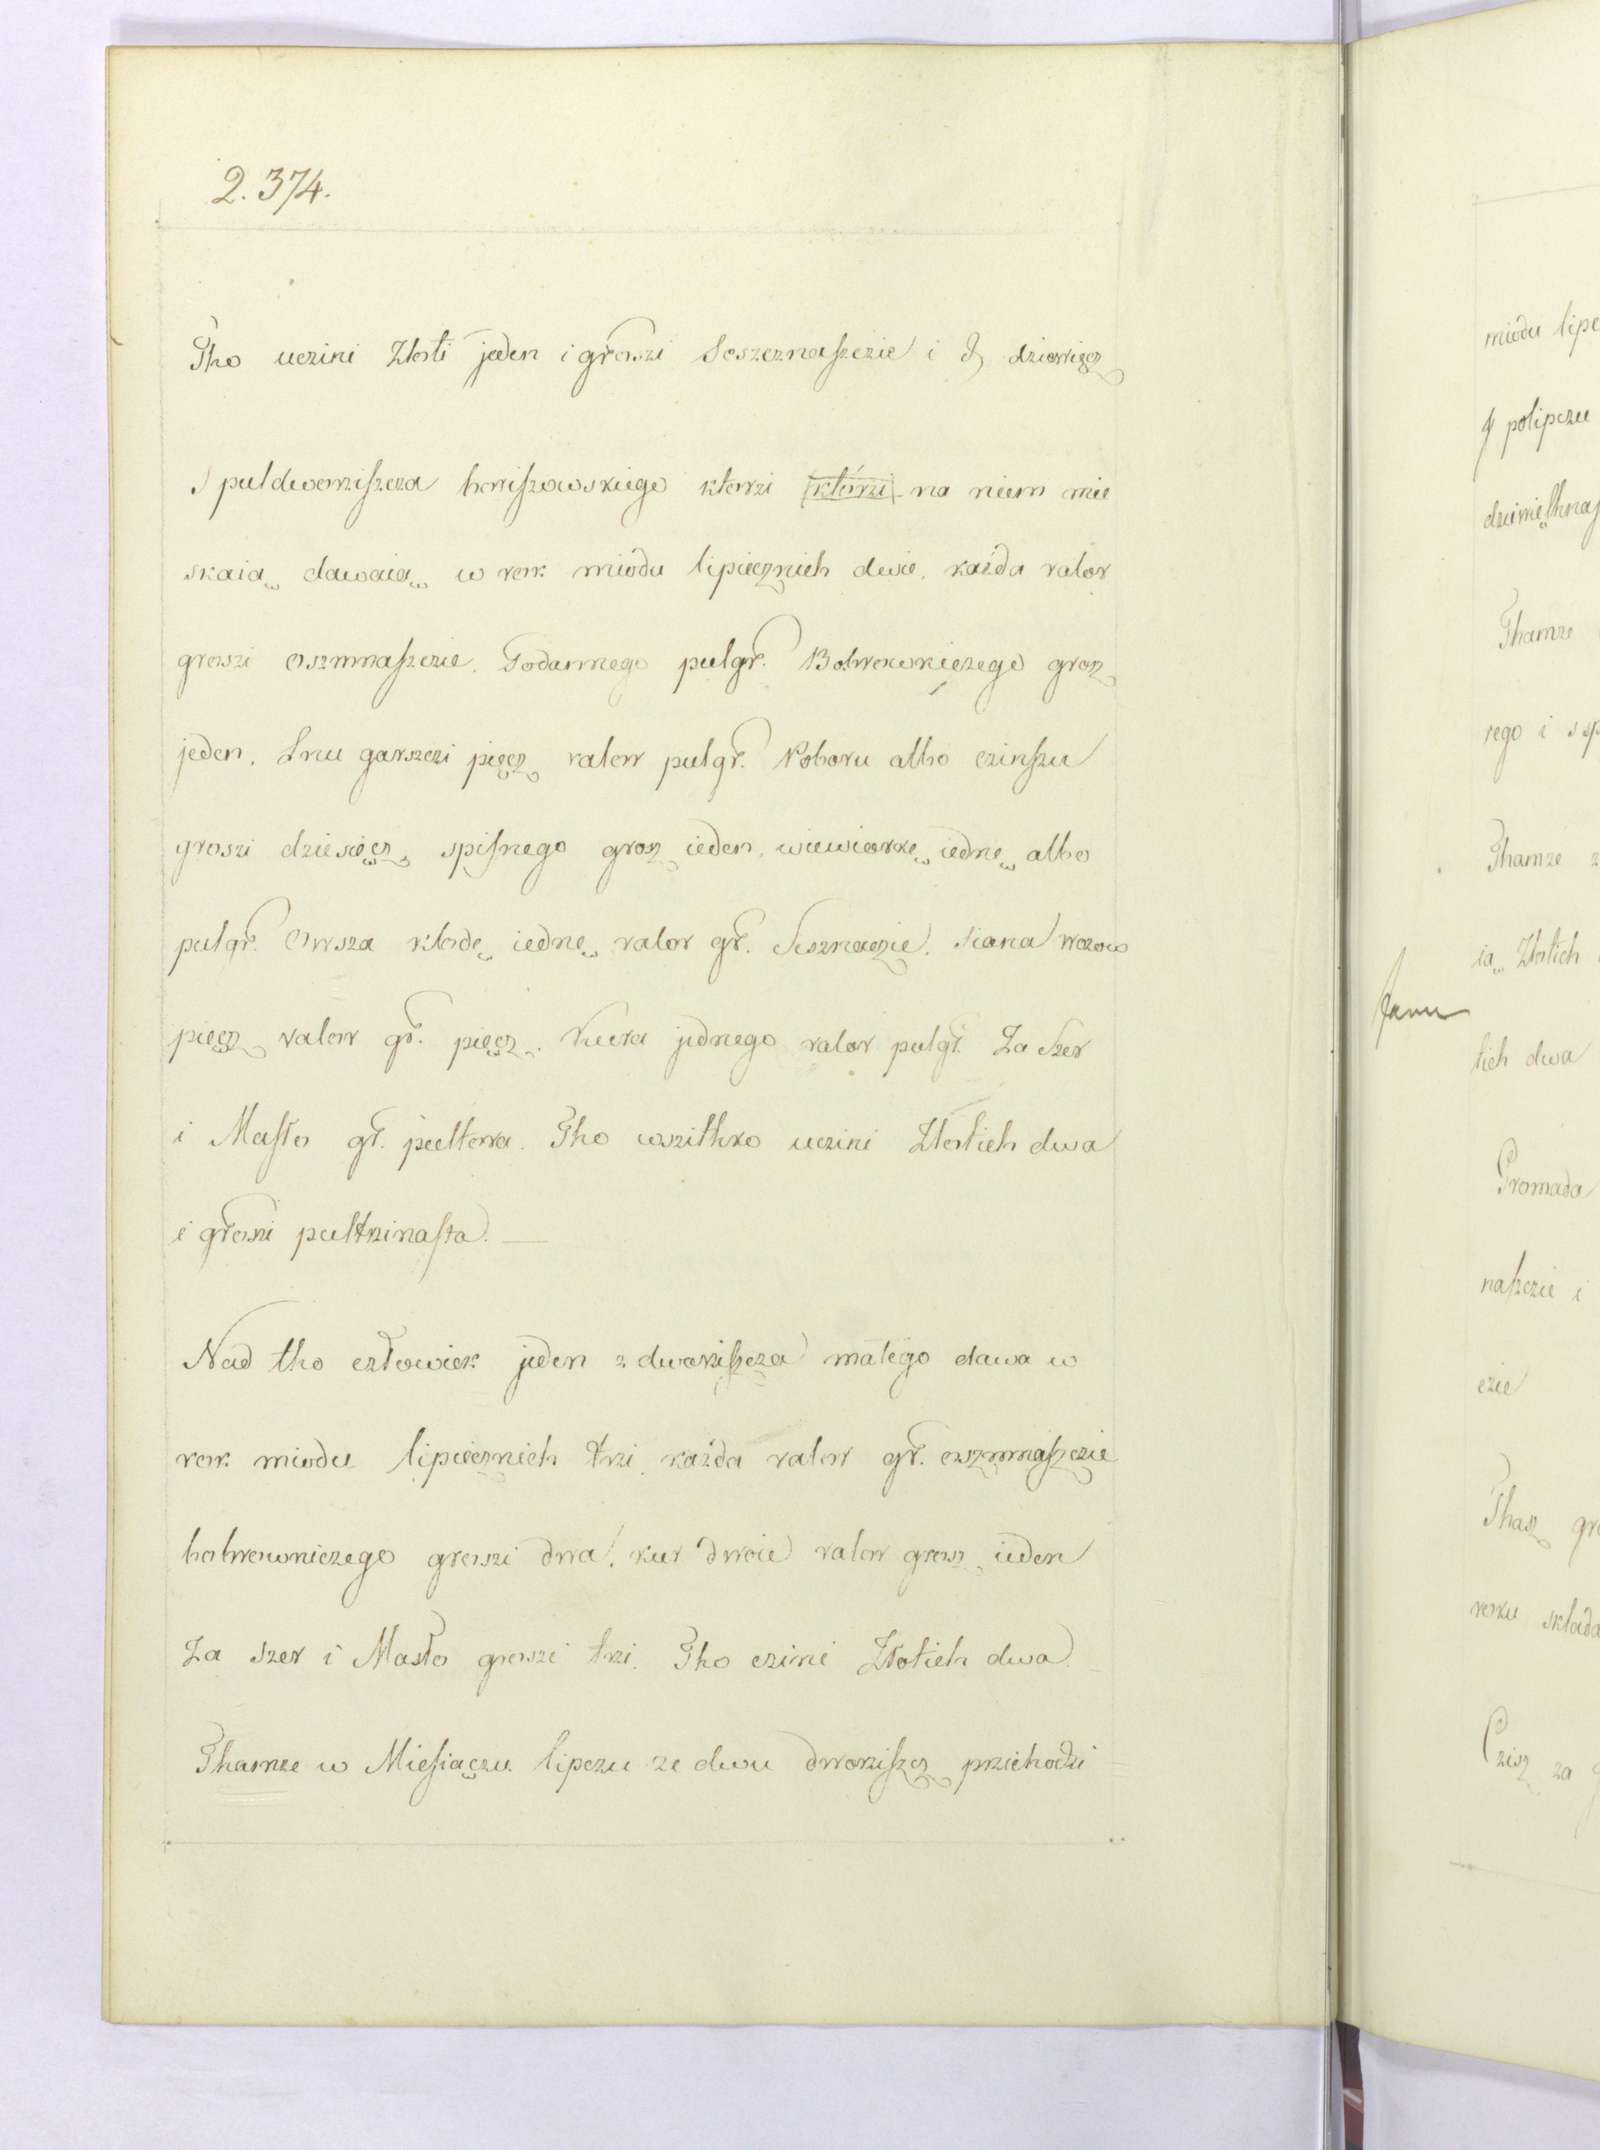 2.374.
Tho uczini Złoti jeden i groszi Seszcznaszczie i ₰ dziewięcz
S puldworziszcza horiszowskiego ktorzi którzi na niem mie
skaią dawaią w rok miodu lipiecznich dwie, każda valor
groszi oszmnaszczie. Podamnego pulgr. Bobrowniczego grosz
jeden. Lnu garszczi pięcz valor pulgr. Poboru albo czinszu
groszi dziesięcz, spisnego grosz ieden, wiewiorkę iednę albo
pulgr. Owsza kłodę iednę valor gr. Sesznaczie. Siana wozow
pięcz valor gr. pięcz. Kura jednego valor pulgr. Za Szer
i Masło gr. pultora. Tho wszithko uczini Złotich dwa
i groszi pultrzinasta. —
Nad tho człowiek jeden z dworziszcza małego dawa w
rok miodu lipiecznich trzi, każda valor gr. oszmnaszczie
bobrowniczego groszi dwa, kur dwoie valor grosz ieden
Za szer i Masło groszi trzi. Tho czini Złotich dwa
Thamze w Miesiączu lipczu ze dwu dworziszcz przichodzi
miodu lipc
₰ polipczu
dziewięthnas
Thamze
rego i s sp
Thamze z
ią Złotich
tich dwa
Gromada
naszczie i
czie
Thasz gro
roku składa
Czisz za